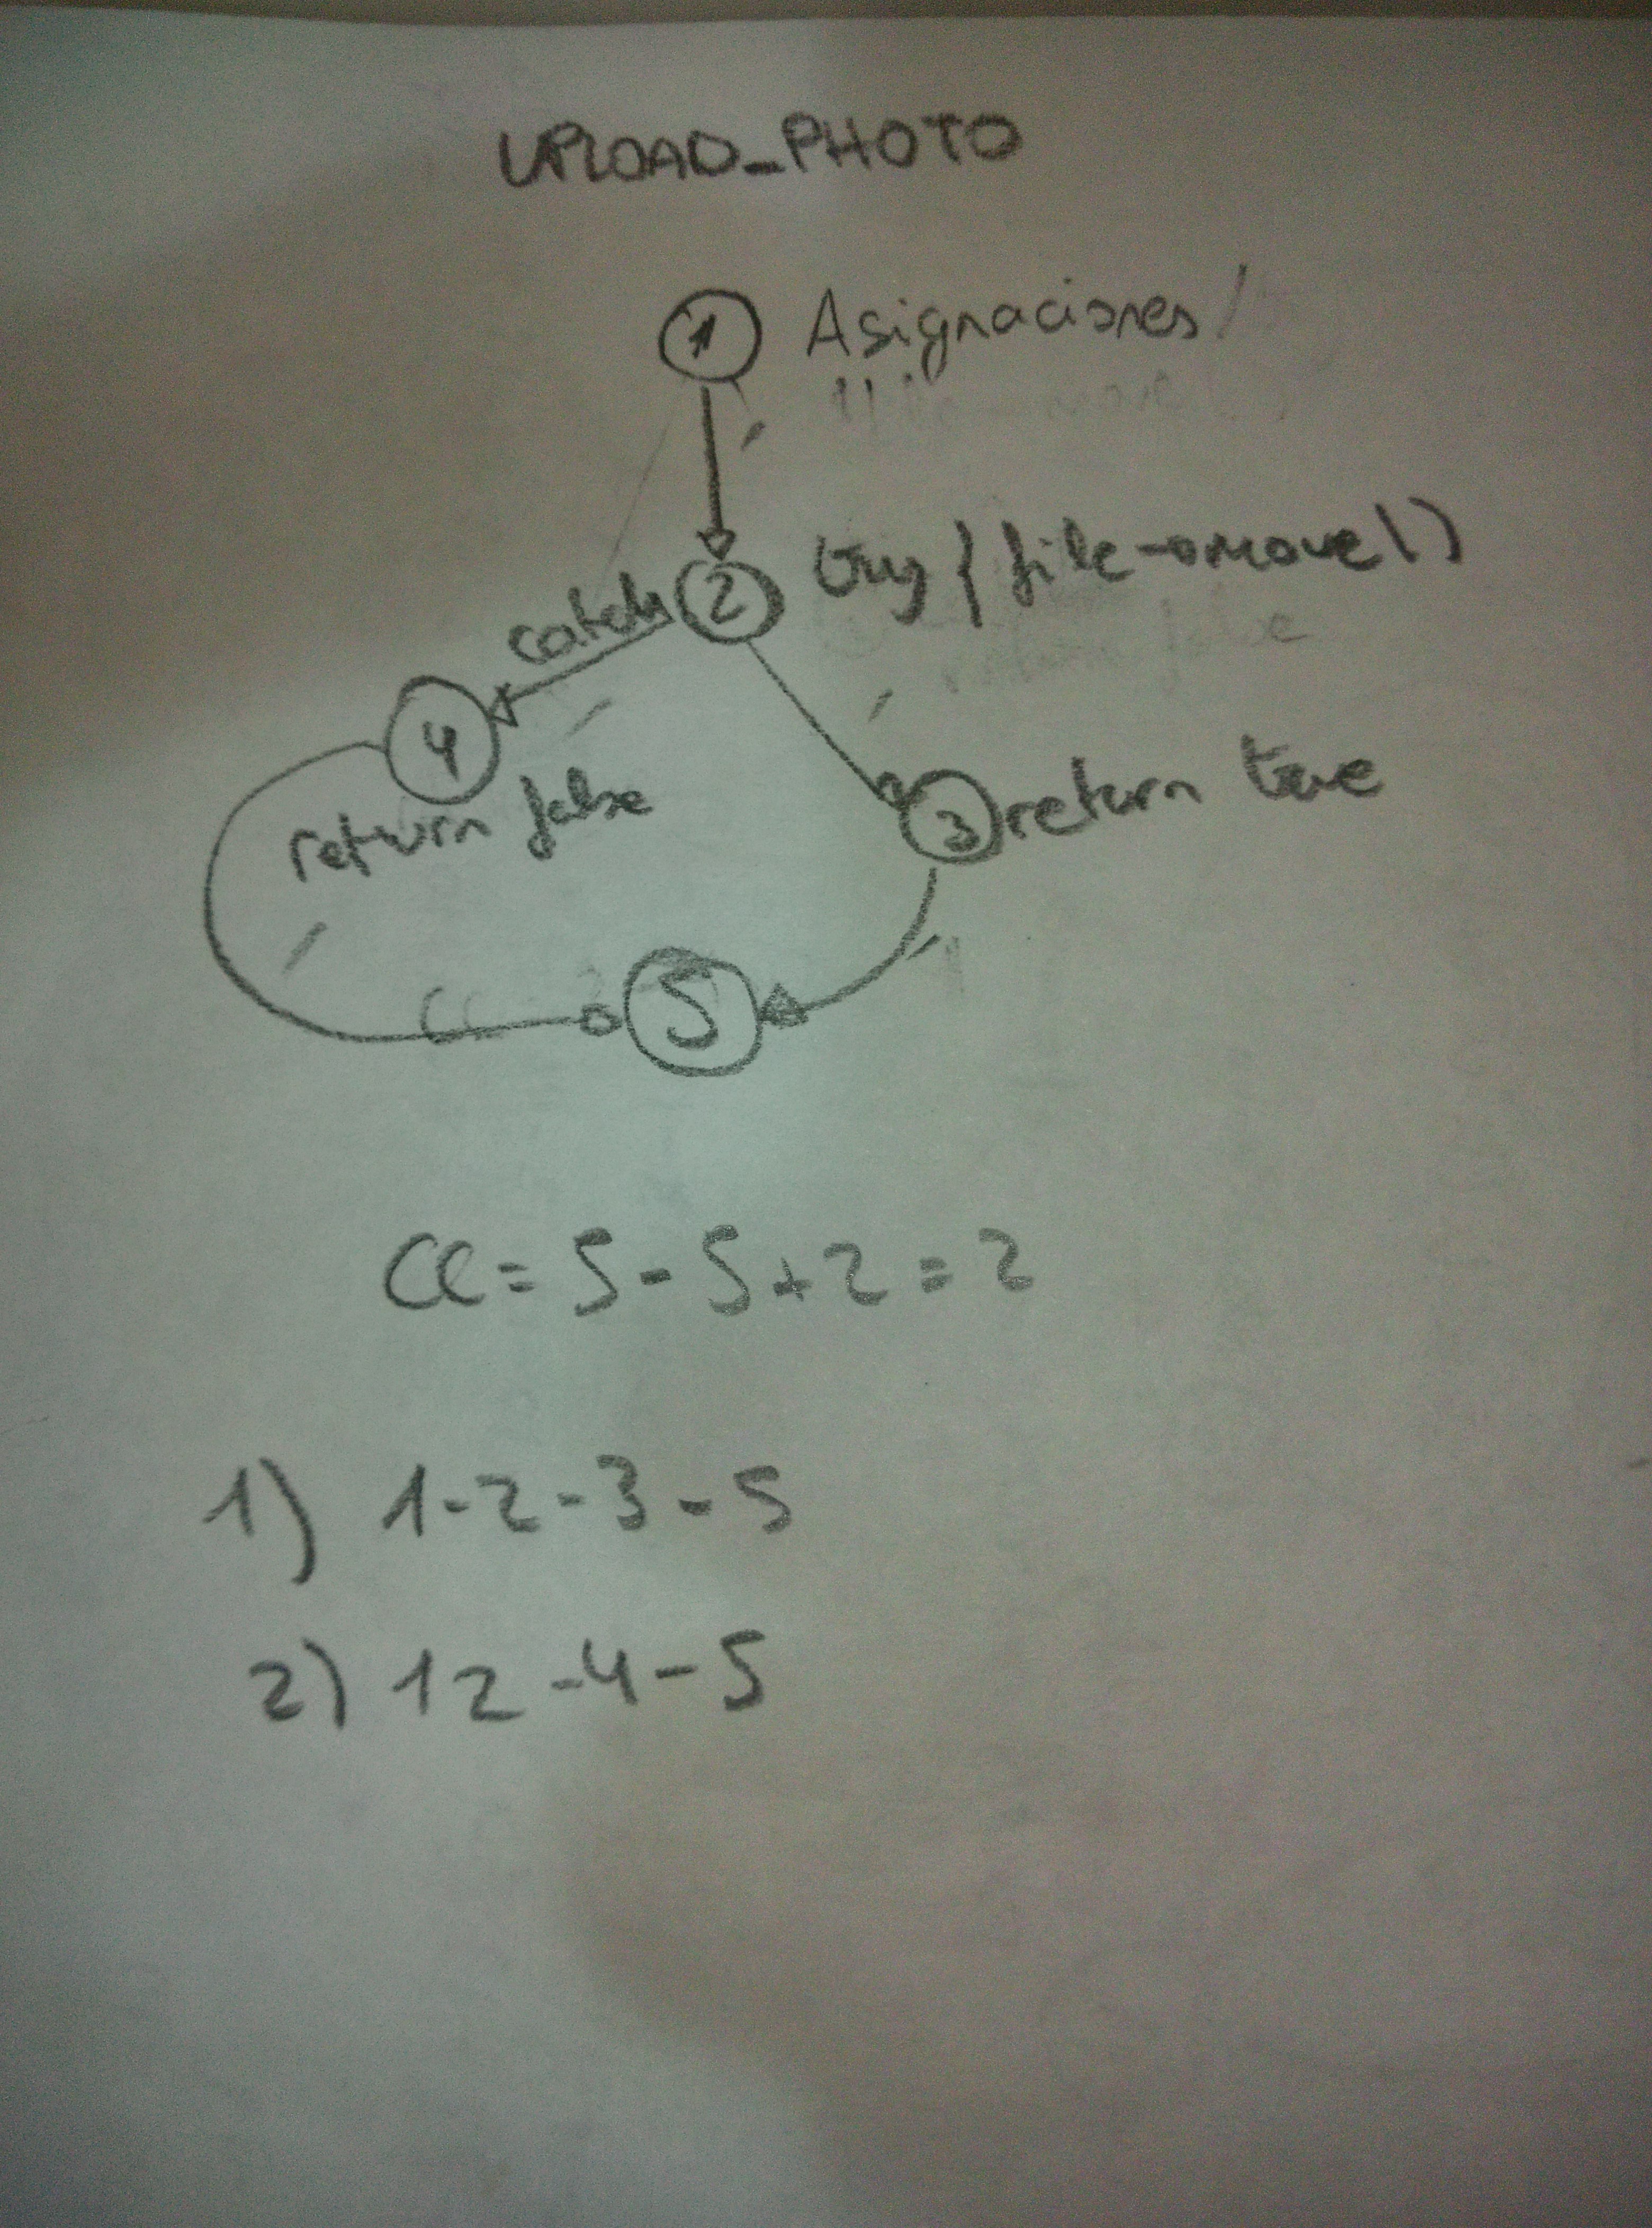 UPLOAD_PHOTO
1 Asignaciones/
2 try { file->move()
catch
4
return false
3 return true
5
CC = 5 - 5 + 2 = 2
1) 1-2-3-5
2) 12-4-5